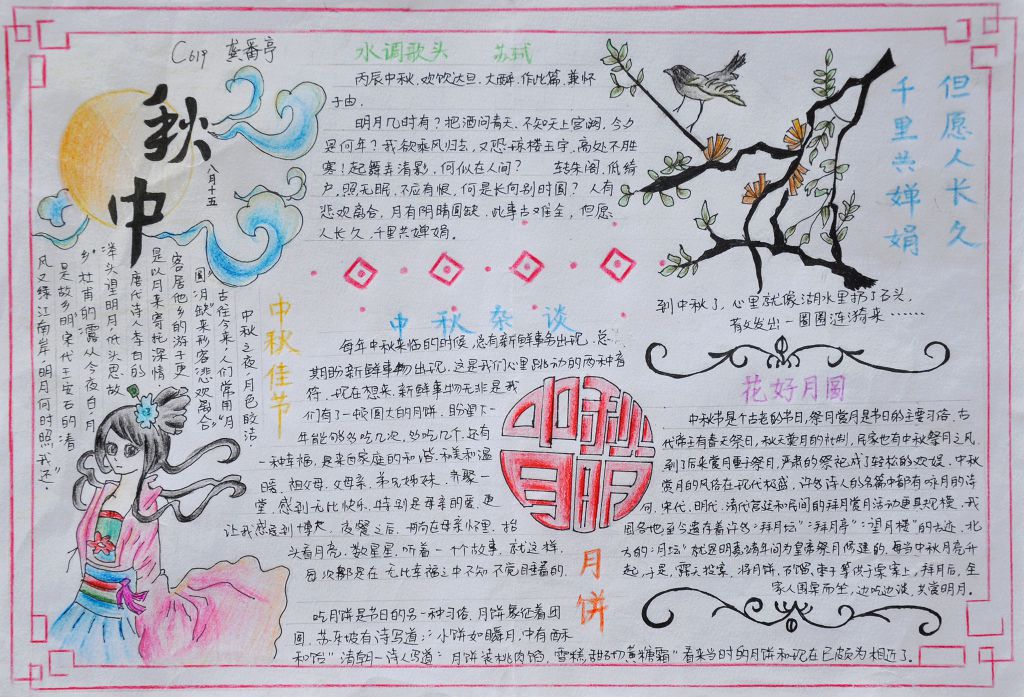 C619 龚番亭
秋
中
八月十五
水调歌头 苏轼
丙辰中秋，欢饮达旦，大醉，作此篇，兼怀
子由．
明月几时有？把酒问青天，不知天上宫阙，今夕
是何年？我欲乘风归去，又恐琼楼玉宇，高处不胜
寒！起舞弄清影，何似在人间？ 转朱阁，低绮
户，照无眠，不应有恨，何是长向别时圆？人有
悲欢离合，月有阴晴圆缺，此事古难全，但愿
人长久，千里共婵娟。
但愿人长久
千里共婵娟
到中秋了，心里就像湖水里扔了石头，
有次发出一圈圈涟漪来……
中秋佳节
中秋之夜，月色皎洁
古往今来，人们常用“月
圆”“月缺”来形容“悲欢离合”
客居他乡的游子更
是以月来寄托深情
唐代诗人李白的
举头望明月，低头思故
乡”，杜甫的“露从今夜白，月
是故乡明”宋代王安石的“春
风又绿江南岸，明月何时照我还”
中秋杂谈
每年中秋来临的时候，总有新鲜事务出现，总
期盼新鲜事物出现，这是我们心里跳动的两种音
符，现在想来，新鲜事物无非是我
们有了一顿圆大的月饼，盼望下一
年能够多吃几次，多吃几个，还有
一种幸福，是来自家庭的和谐、和美和温
暖，祖父母、父母亲、弟兄姊妹，齐聚一
堂，感到无比快乐，特别是母亲的爱，更
让我感受到博大，夜餐之后，用向在母亲怀里，抬
头看月亮，数星星，听着一个故事，就这样，
每次都是在无比幸福之中不知不觉睡着的．
中秋月明
花好月圆
中秋节是个古老的节日，祭月赏月是节日的主要习俗．古
代帝王有春天祭日，秋天祭月的社制，民家也有中秋祭月之风，
到了后来赏月重于祭月，严肃的祭祀成了轻松的欢娱．中秋
赏月的风俗在现代极盛，许多诗人的名篇中都有咏月的诗
句，宋代、明代、清代宫廷和民间的拜月赏月活动更具规模．我
国各地至今遗存着许多“拜月坛”“拜月亭”“望月楼”的古迹．北
方的“月坛”就是明嘉靖年间为皇帝祭月修建的．每当中秋月亮升
起，于是，露天投案，将月饼、石榴、枣子等供于桌案上，拜月后，全
家人围桌而坐，边吃边谈，共赏明月．
月饼
吃月饼是节日的另一种习俗，月饼象征着团
圆，苏东坡有诗写道：“小饼如嚼月，中有酥
和饴”清朝一诗人写道：“月饼装桃肉馅，雪糕甜砌蔗糖霜”看来当时的月饼和现在已颇为相近了．